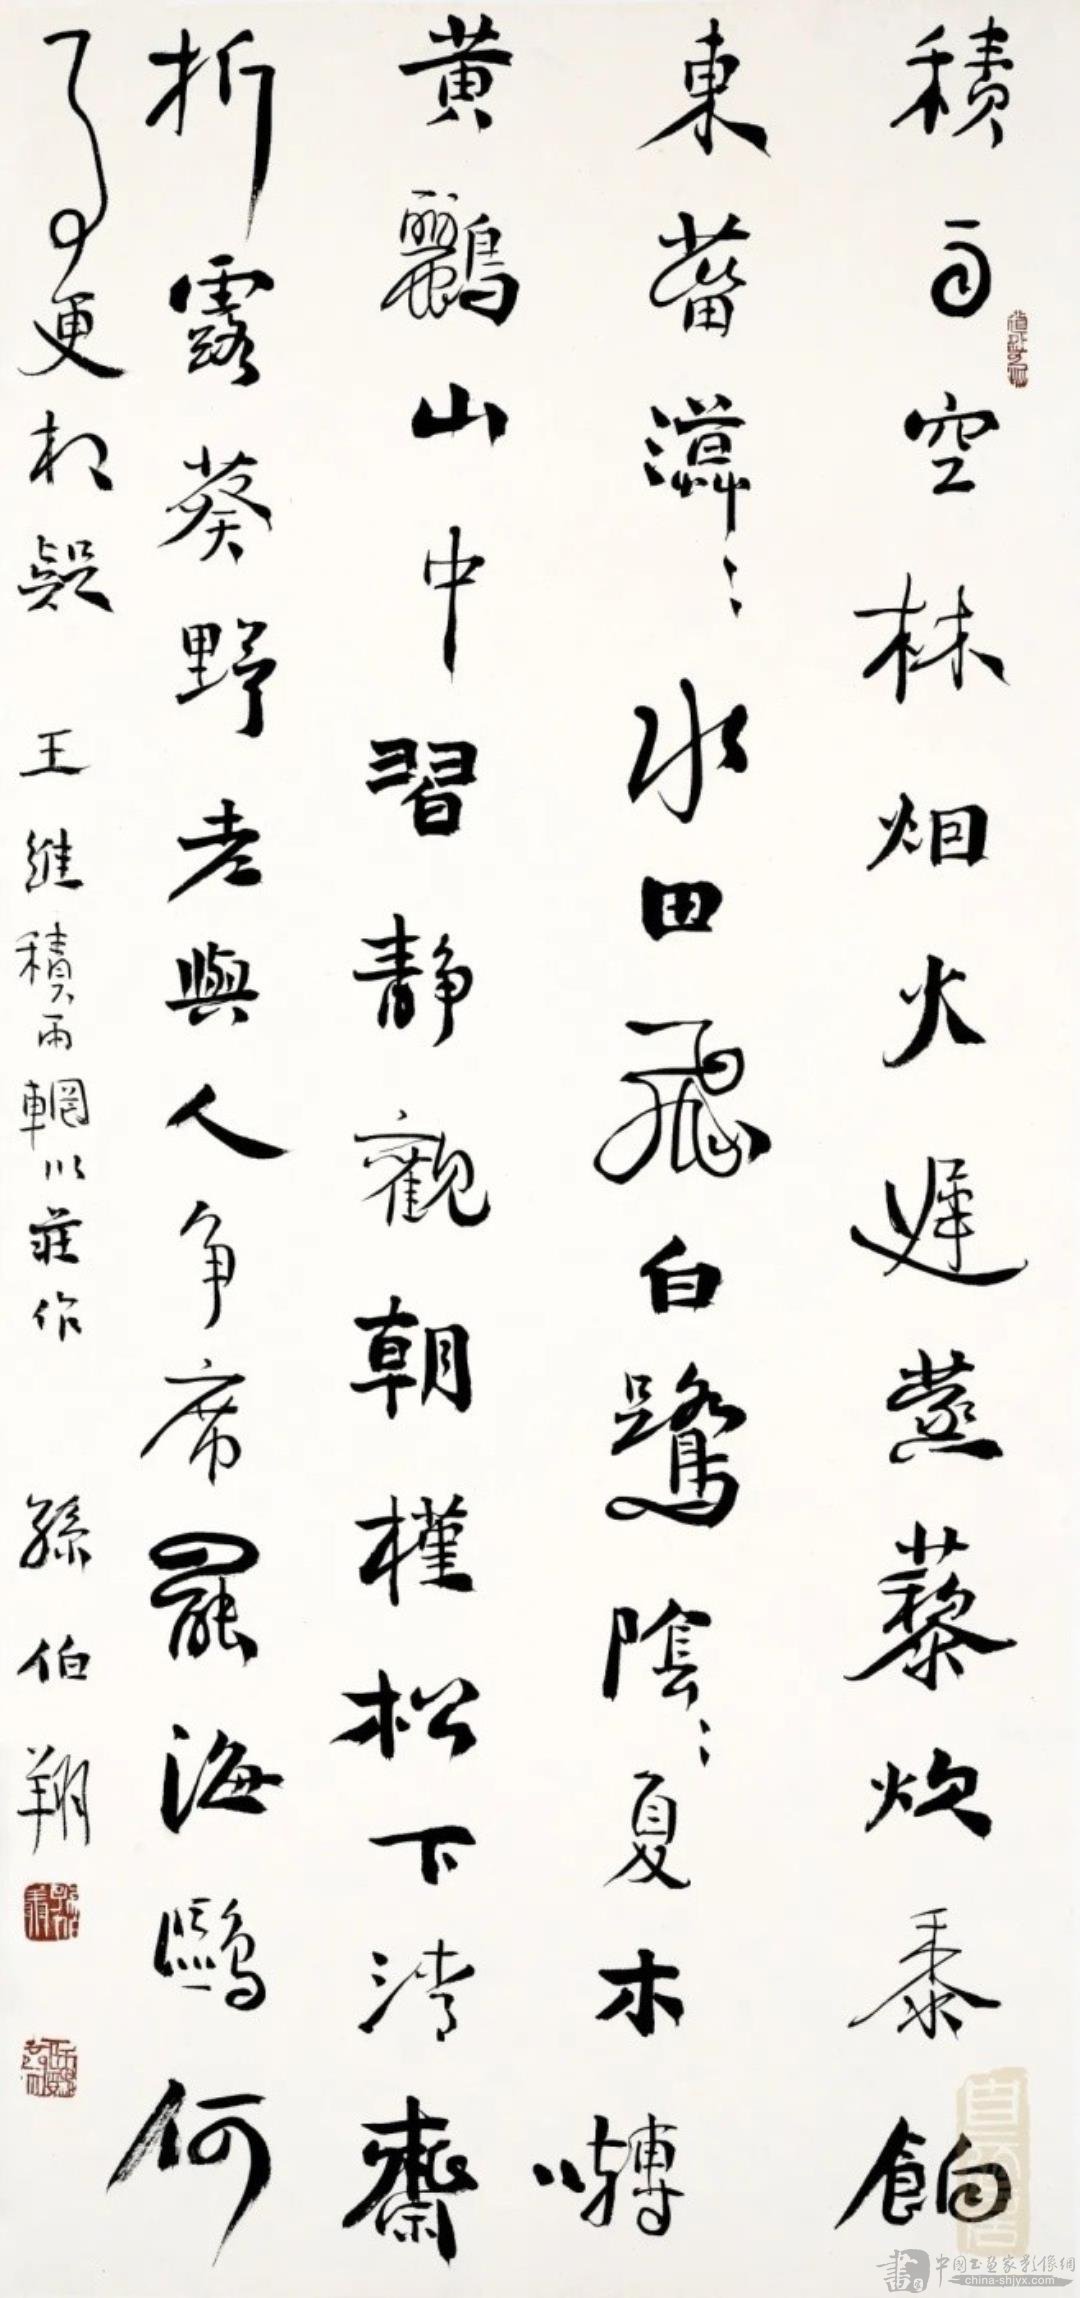 積雨空林烟火遲蒸藜炊黍餉
東菑漠〻水田飛白鷺陰〻夏木囀
黄鸝山中習靜觀朝槿松下清齋
折露葵野老與人争席罷海鷗何
事更相疑 王維積雨輞川莊作 孫伯翔
中國書畫家影像網
china-shjyx.com